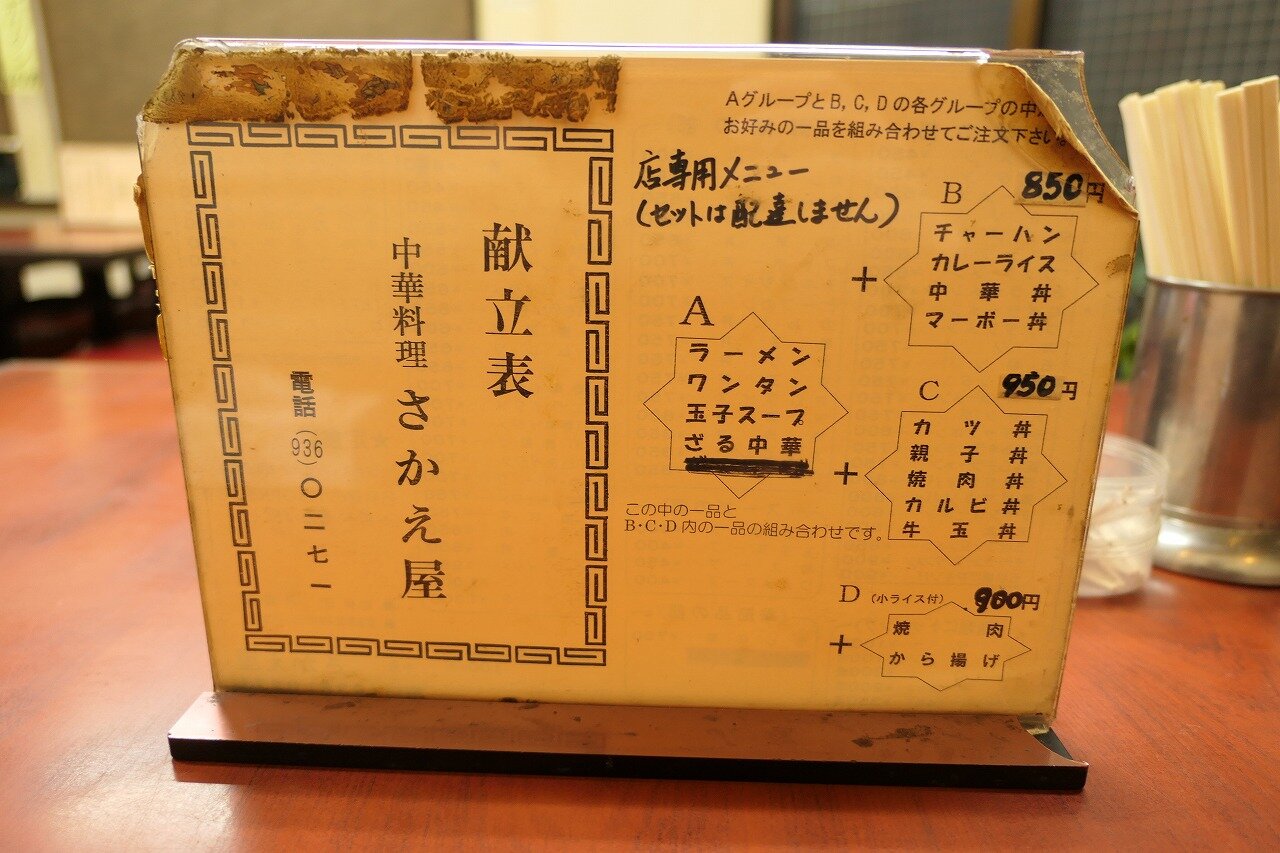 献立表
中華料理 さかえ屋
電話(936)〇二七一
AグループとB, C, Dの各グループの中
お好みの一品を組み合わせてご注文下さい。
店専用メニュー
(セットは配達しません)
A
ラーメン
ワンタン
玉子スープ
ざる中華
この中の一品と
B・C・D内の一品の組み合わせです。
+
B 850円
チャーハン
カレーライス
中華丼
マーボー丼
+
C 950円
カツ丼
親子丼
焼肉丼
カルビ丼
牛玉丼
+
D (小ライス付) 900円
焼肉
から揚げ